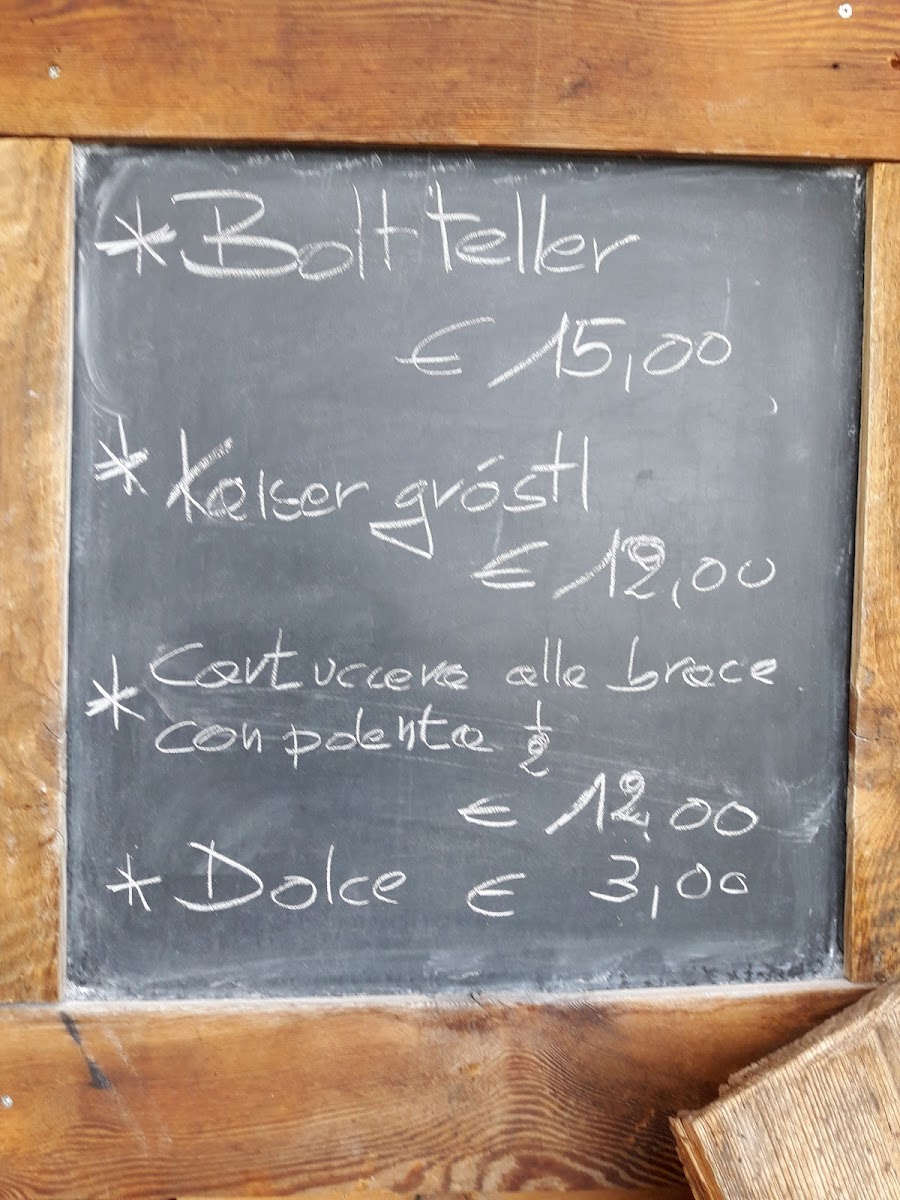 * Bolt-teller
€ 15,00
* Kaiser gróstl
€ 12,00
* Cartuccera alla brace
con polenta 1/2
€ 12,00
* Dolce € 3,00